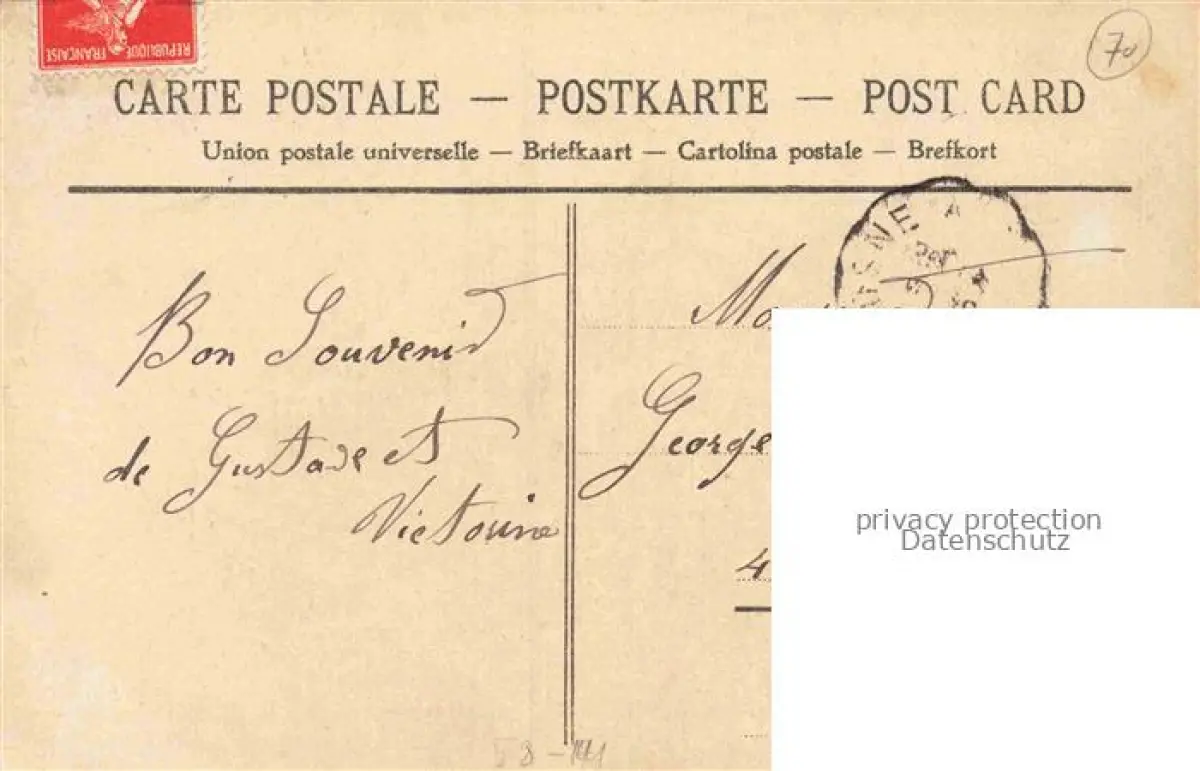 REPUBLIQUE FRANÇAISE
70
CARTE POSTALE — POSTKARTE — POST CARD
Union postale universelle — Briefkaart — Cartolina postale — Brefkort
Bon Souvenir
de Gustave et
Victorine
George
4
privacy protection
Datenschutz